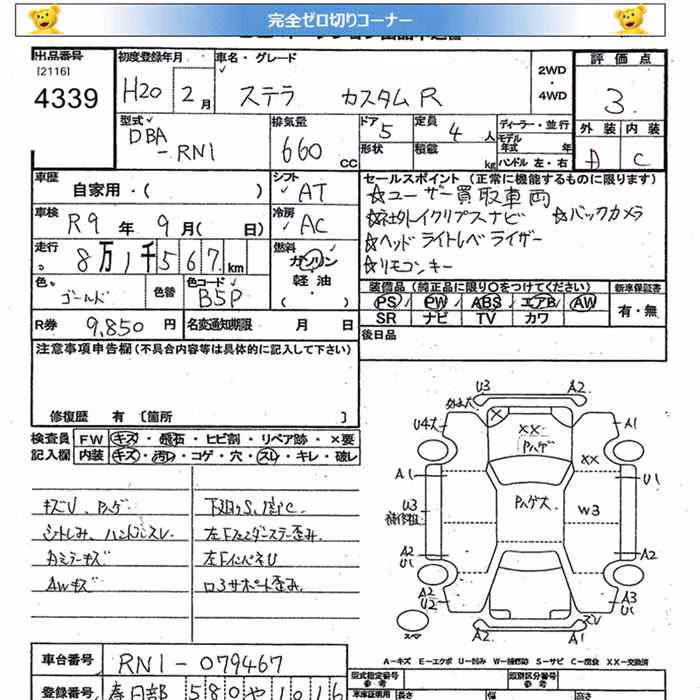 完全ゼロ切りコーナー
出品番号
[2116]
4339
初度登録年月
H20 2月
車名・グレード
ステラ カスタムR
2WD
・
4WD
評価点
3
外装 内装
A C
型式
DBA
-RN1
排気量
660 CC
ドア 5
形状
定員 4人
積載 kg
ディーラー・並行
モデル年式 年
ハンドル 左・右
車歴
自家用・( )
シフト
AT
セールスポイント (正常に機能するものに限ります)
☆ユーザー買取車両
☆社外トレイクリプスナビ ☆バックカメラ
☆ヘッドライトレベライザー
☆リモコンキー
車検
R9年 9月( 日)
冷房
AC
走行
8万1千567km
燃料
ガソリン
軽油
・( )
色
ゴールド
色替
色コード
B5P
装備品 (純正品に限り○をつけてください)
PS PW ABS エアB AW
SR ナビ TV カワ
新車保証書
有・無
R券 9,850円
名変通知期限 月 日
後日品
注意事項申告欄(不具合内容等は具体的に記入して下さい)
修復歴 有 [箇所 ]
検査員記入欄
FW キズ・飛石・ヒビ割・リペア跡・×要
内装 キズ・汚レ・コゲ・穴・スレ・キレ・破レ
キズU、Pハゲ
シートしみ、ハンドルスレ
Aミラーキズ
AWキズ
下廻りS、腐C
左Fフェンダーステー歪み
左FインパネU
ロアサポート歪み
U3 A2
U4大 A1
××
Pハゲ
××
A1 U1
Pハゲ大
U3
補修粗
W3
A2
U1
A2
A2
U2
A3
U1
A2 A1
スペア
A-キズ E-エクボ U-凹み W-補修跡 S-サビ C-腐食 XX-交換済
車台番号 RN1-079467
登録番号 春日部 580や1016
型式指定番号
参考
類別区分番号
参考
車庫証明用 長さ 幅 高さ